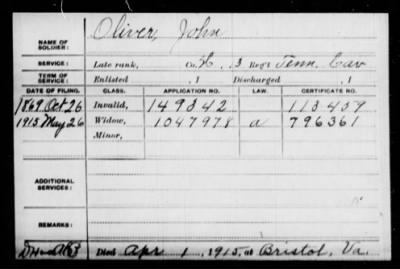 NAME OF SOLDIER: Oliver, John
SERVICE: Late rank, Co. H, 3 Reg't Tenn. Cav
TERM OF SERVICE: Enlisted , 1 Discharged , 1
DATE OF FILING. CLASS. APPLICATION NO. LAW. CERTIFICATE NO.
1869 Oct 26 Invalid, 149342 113459
1915 May 26 Widow, 1047978 a 796361
Minor,
ADDITIONAL SERVICES:
REMARKS:
Died Apr 1, 1915, at Bristol, Va.